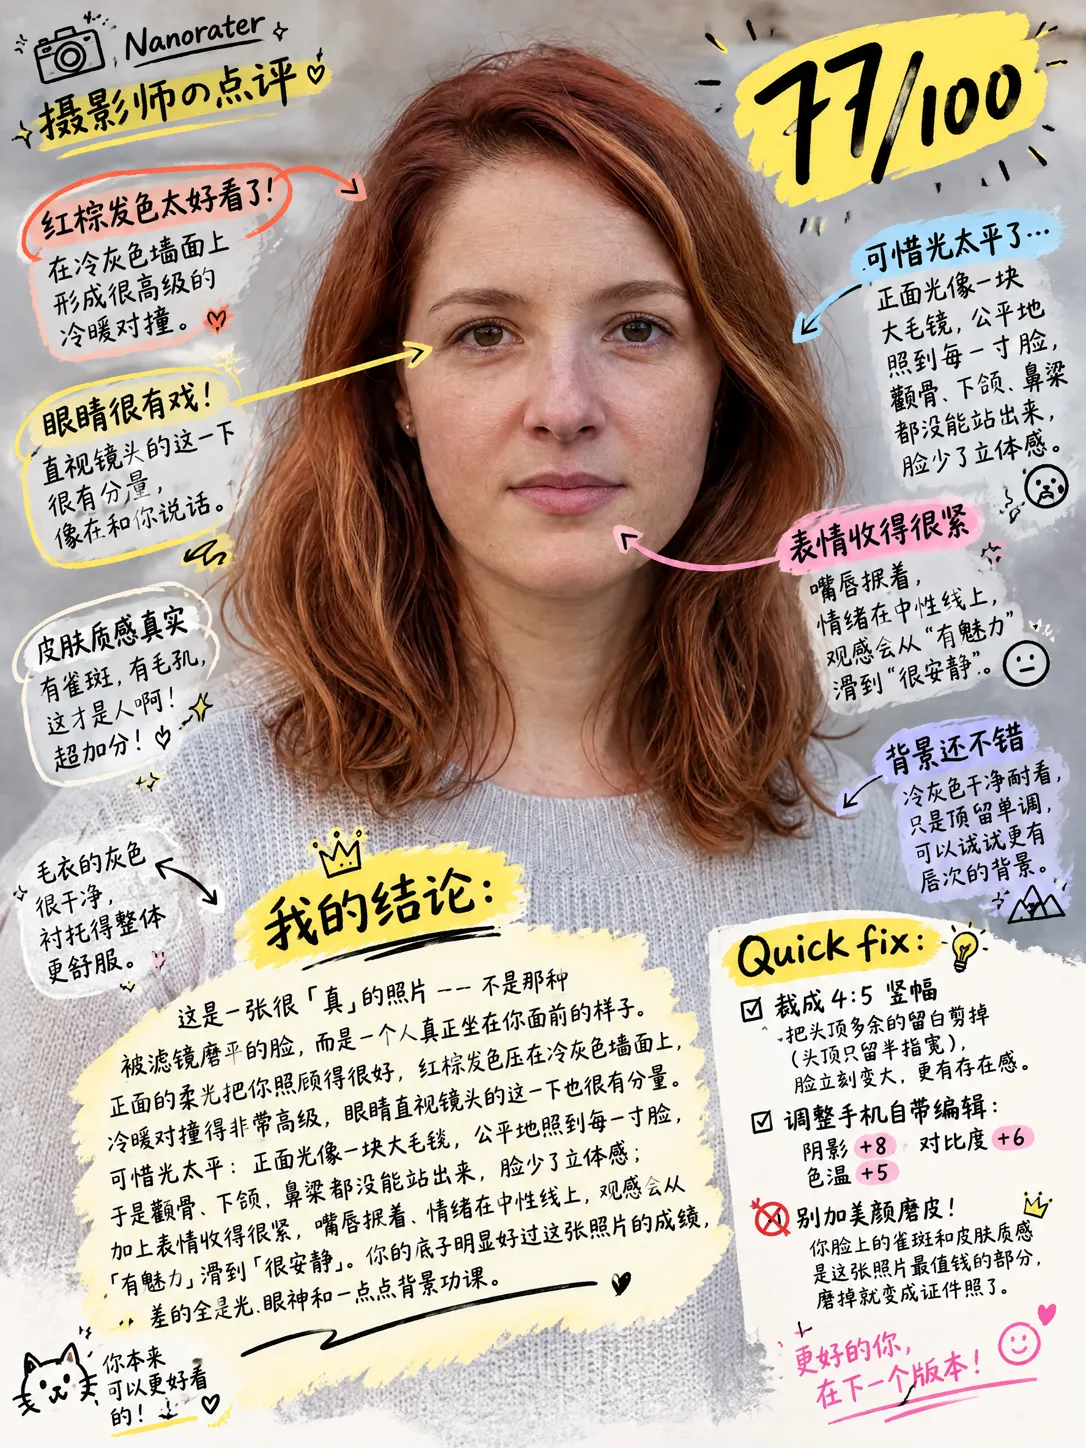 Nanorater
摄影师の点评
77/100
红棕发色太好看了!
在冷灰色墙面上
形成很高级的
冷暖对撞。
眼睛很有戏!
直视镜头的这一下
很有分量,
像在和你说话。
皮肤质感真实
有雀斑,有毛孔,
这才是人啊!
超加分!
毛衣的灰色
很干净,
衬托得整体
更舒服。
可惜光太平了…
正面光像一块
大毛镜,公平地
照到每一寸脸,
颧骨、下颌、鼻梁
都没能站出来,
脸少了立体感。
表情收得很紧
嘴唇抿着,
情绪在中性线上,
观感会从“有魅力”
滑到“很安静”。
背景还不错
冷灰色干净耐看,
只是顶留单调,
可以试试更有
层次的背景。
我的结论:
这是一张很「真」的照片 —— 不是那种
被滤镜磨平的脸,而是一个人真正坐在你面前的样子。
正面的柔光把你照顾得很好,红棕发色压在冷灰色墙面上,
冷暖对撞得非常高级,眼睛直视镜头的这一下也很有分量。
可惜光太平:正面光像一块大毛毯,公平地照到每一寸脸,
于是颧骨、下颌,鼻梁都没能站出来,脸少了立体感;
加上表情收得很紧,嘴唇抿着、情绪在中性线上,观感会从
「有魅力」滑到「很安静」。你的底子明显好过这张照片的成绩,
差的全是光、眼神和一点点背景功课。
你本来
可以更好看
的!
Quick fix:
裁成 4:5 竖幅
把头顶多余的留白剪掉
(头顶只留半指宽),
脸立刻变大,更有存在感。
调整手机自带编辑:
阴影 +8 对比度 +6
色温 +5
别加美颜磨皮!
你脸上的雀斑和皮肤质感
是这张照片最值钱的部分,
磨掉就变成证件照了。
更好的你,
在下一个版本!